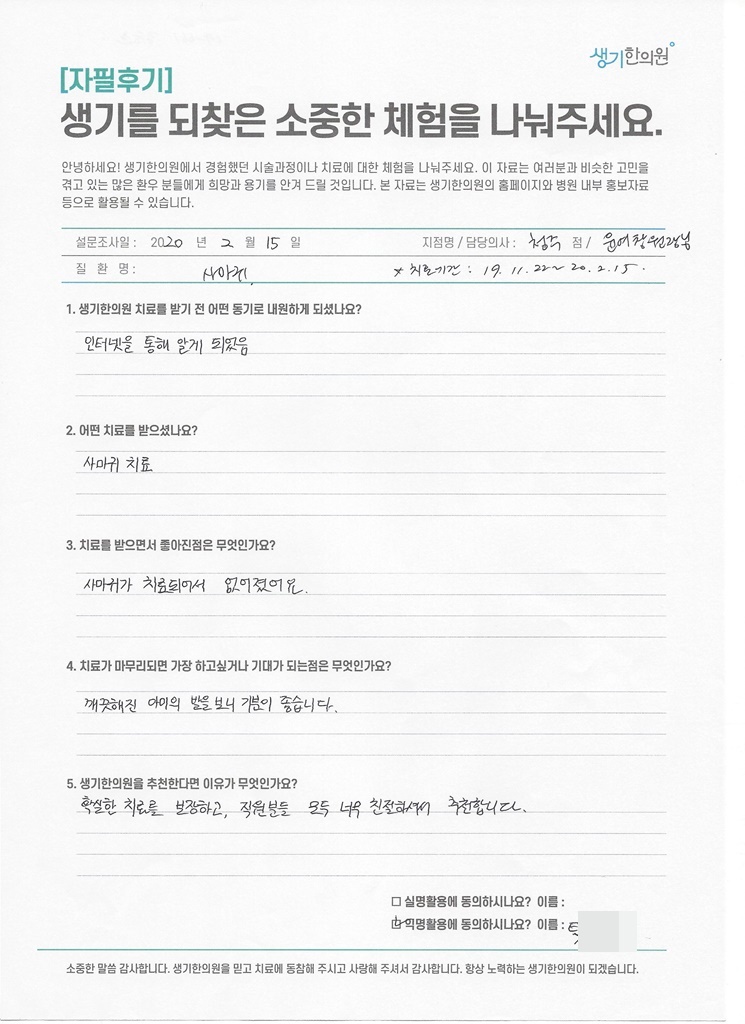 생기한의원
[자필후기]
생기를 되찾은 소중한 체험을 나눠주세요.
안녕하세요! 생기한의원에서 경험했던 시술과정이나 치료에 대한 체험을 나눠주세요. 이 자료는 여러분과 비슷한 고민을
겪고 있는 많은 환우 분들에게 희망과 용기를 안겨 드릴 것입니다. 본 자료는 생기한의원의 홈페이지와 병원 내부 홍보자료
등으로 활용될 수 있습니다.
설문조사일 : 2020 년 2 월 15 일 지점명 / 담당의사 : 청주 점 / 원장님
질 환 명 : 사마귀, * 치료기간 : 19. 11. 22 ~ 20. 2. 15.
1. 생기한의원 치료를 받기 전 어떤 동기로 내원하게 되셨나요?
인터넷을 통해 알게 되었음
2. 어떤 치료를 받으셨나요?
사마귀 치료
3. 치료를 받으면서 좋아진점은 무엇인가요?
사마귀가 치료되어서 없어졌어요.
4. 치료가 마무리되면 가장 하고싶거나 기대가 되는점은 무엇인가요?
깨끗해진 아이의 발을 보니 기분이 좋습니다.
5. 생기한의원을 추천한다면 이유가 무엇인가요?
확실한 치료를 보장하고, 직원분들 모두 너무 친절하셔서 추천합니다.
□ 실명활용에 동의하시나요? 이름 :
☑ 익명활용에 동의하시나요? 이름 :
소중한 말씀 감사합니다. 생기한의원을 믿고 치료에 동참해 주시고 사랑해 주셔서 감사합니다. 항상 노력하는 생기한의원이 되겠습니다.